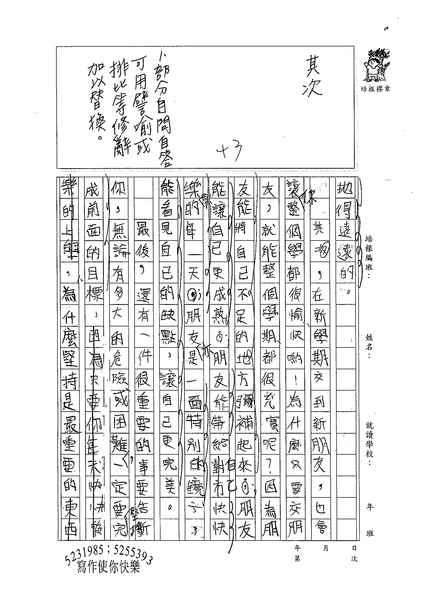 培根標章
其次
卜部分自問自答
可用譬喻或
排比等修辭
加以替換。
+3
培根編班：
姓名：
就讀學校：
年 班
地得遠遠的。
其次，在新學期交到新朋友，也會
讓整個學都很愉快喲！為什麼只要交朋
友，就能整個學期都很充實呢？因為朋
友能將自己不足的地方彌補起來，朋友
能讓自己更成熟，朋友能等給對方快快
樂的每一天。朋友是一面特別的鏡子，
能看見自己的缺點，讓自己更完美。
最後，還有一件很重要的事要告訴
你，無論有多大的危險或困難，一定要完
成前面的目標，因為只要你每天快快樂
樂的上學，為什麼堅持是最重要的東西
年 月 日
第 次
5231985；5255393
寫作使你快樂